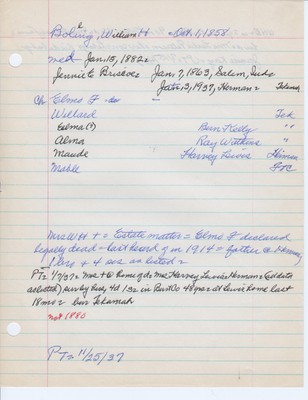 Boling, William H - Oct. 1, 1858
med Jan. 15, 1882
Jennie E Jan. 7, 1863, Salem, Inds
Jan. 13, 1937, Herman Tekamah
Ch Elmo F
Willard Tek
Selma (?) Ben Kelly "
Alma Ray Watkins "
Maude Harvey Lewis Herman
Mable
Mrs W H + = Estate matter = Elmo F declared
legally dead = last heard of in 1914 =
+ 4 sis as listed =
PT= 1/7/37= Mrs + @ home of da Mrs Harvey Lewis Herman
surv by hus, 4d 1s in Burt Co 48 yrs at Lewis home last
18 mo = bur Tekamah
not 1885
PT= 11/25/37